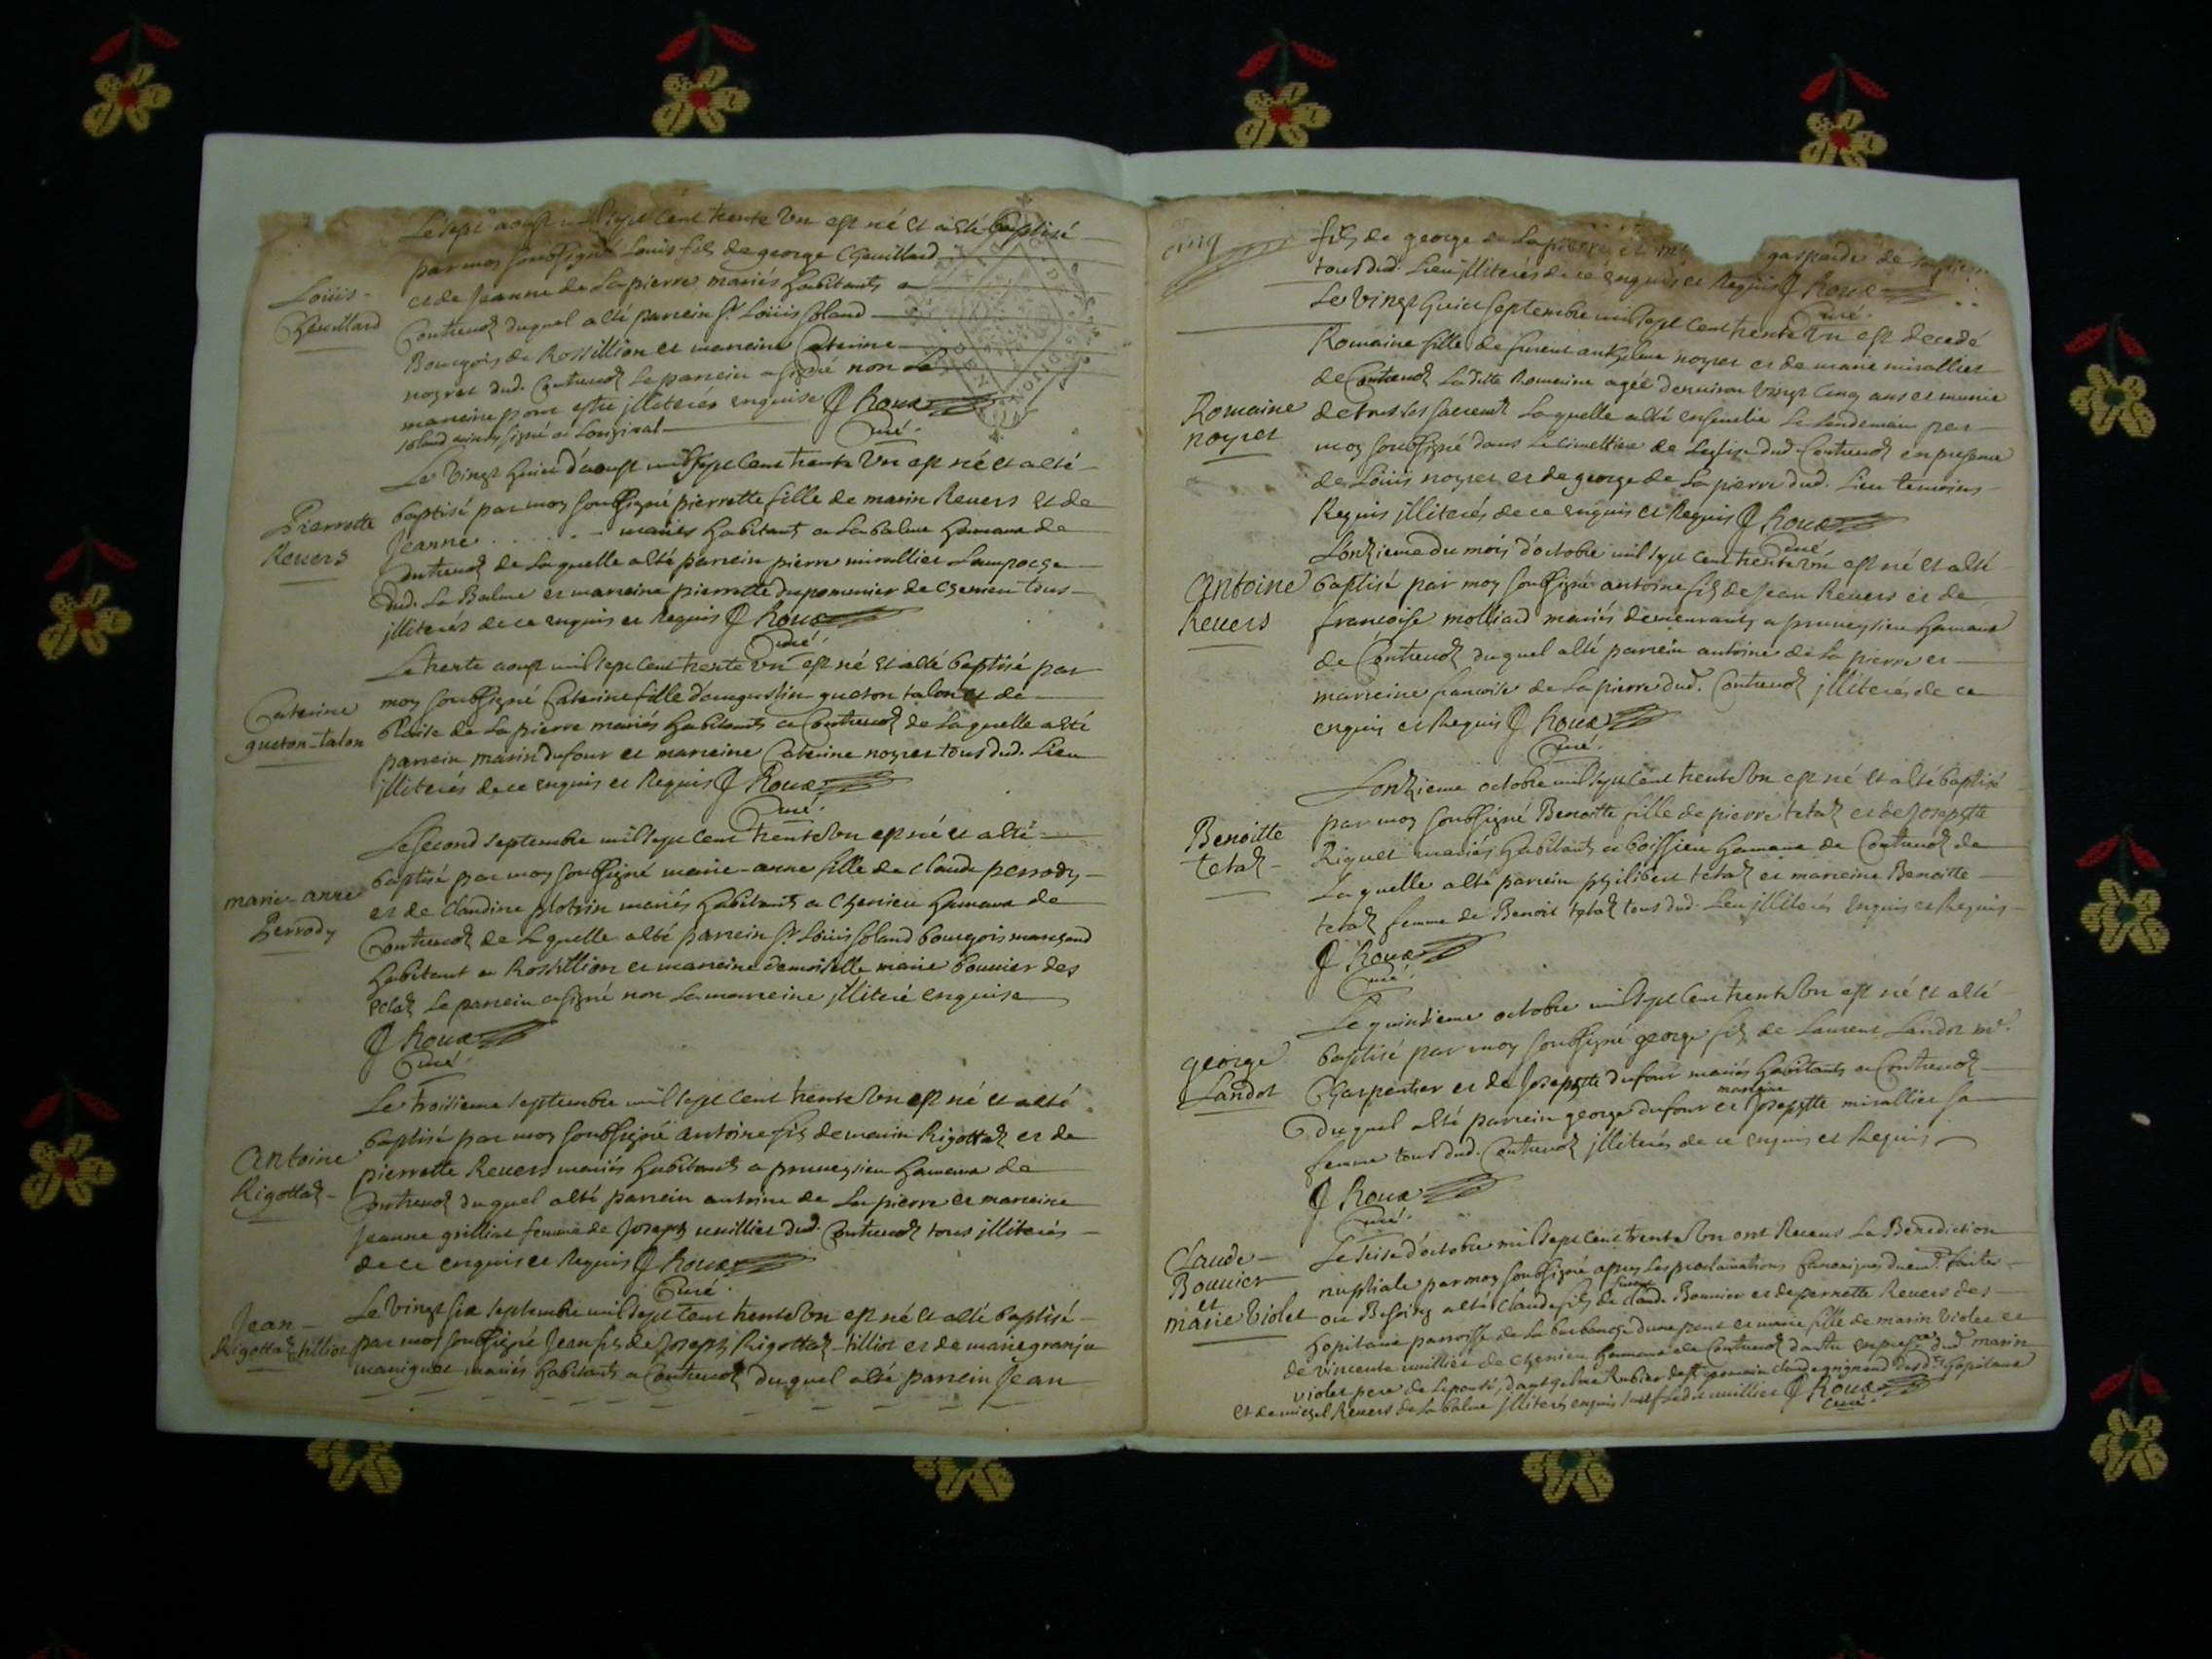 Le sept aoust mil sept cent trente un est né et a été baptisé
par moy soubsigné Louis fils de george Cheuillard
Loüis
Cheuillard
et de Jeanne de Lapierre mariés habitants a
Contreuoz duquel a été parrein Sr Loüis Soland
Bourgois de Rossillion et marreine Caterine
noyret dud. Contreuoz le parrein a signé non la
marreine pour estre illiterée enquise J Roux
soland ainsy signé a Loriginal
Curé.
Le vingt huict d'aoust mil sept cent trente un est né et a été
Pierrette
Reuers
baptisé par moy soubsigné pierrette fille de marin Reuers et de
Jeanne . . . . . . mariés habitants a La balme hameau de
Contreuoz de Laquelle a été parrein pierre mirallier
dud. La Balme et marreine pierrette dupommier de Chemieu tous
illiterés de ce enquis et Requis J Roux
Curé.
Le trente aoust mil sept cent trente un est né et a été baptisé par
Caterine
gueton-talon
moy soubsigné Caterine fille d'augustin gueton talon et de
blaise de La pierre mariés habitants a Contreuoz de Laquelle a été
parrein marin dufour et marreine Caterine noyret tous dud. Lieu
illiterés de ce enquis et Requis J Roux
Curé.
Le second septembre mil sept cent trente un est né et a été
marie-anne
Perrody
baptisé par moy soubsigné marie-anne fille de claude perrody
et de Claudine protrin mariés habitants a Chemieu hameau de
Contreuoz de Laquelle a été parrein Sr Loüis Soland bourgois marchand
habitant a Rossillion et marreine demoiselle marie bouuier des
eclaz Le parrein a signé non La marreine illiteré enquise
J Roux
Curé.
Le troisieme septembre mil sept cent trente un est né et a été
Antoine
Rigottaz
baptisé par moy soubsigné Antoine fils de marin Rigottaz et de
pierrette Reuers mariés habitants a pruueysieu hameau de
Contreuoz duquel a été parrein antoine de La pierre et marreine
Jeanne grilliat femme de Joseph uuillier dud. Contreuoz tous illiterés
de ce enquis et Requis J Roux
Curé.
Jean
Rigottaz tilliot
Le vingt six septembre mil sept cent trente un est né et a été baptisé
par moy soubsigné Jean fils de Joseph Rigottaz-tilliot et de marie granju
maniguet mariés habitants a Contreuoz duquel a été parrein Jean
cinq
fils de george de Lapierre et gasparde de
tous dud. Lieu illiterés de ce enquis et Requis J Roux
Curé.
Le vingt huict septembre mil sept cent trente un est decedé
Romaine fille de feu anthelme noyret et de marie mirallier
Romaine
noyret
de Contreuoz Laditte Romaine agée denuiron vingt cinq ans et munie
de tous les sacrements Laquelle a été enseuelie Le Lendemain par
moy soubsigné dans Le cimettiere de Leglise dud. Contreuoz en presence
de Loüis noyret et de george de La pierre dud. Lieu temoins
Requis illiterés de ce enquis et Requis J Roux
Curé
Lonzieme du mois d'octobre mil sept cent trente un est né et a été
Antoine
Reuers
baptisé par moy soubsigné antoine fils de Jean Reuers et de
francoise molliard mariés demeurants a pruueysieu hameau
de Contreuoz duquel a été parrein antoine de La pierre et
marreine francoise de La pierre dud. Contreuoz illiterés de ce
enquis et Requis J Roux
Curé.
Lonzieme octobre mil sept cent trente un est né et a été baptisé
Benoitte
tetaz
par moy soubsigné Benoitte fille de pierre tetaz et de Josephte
Riguet mariés habitants a boissieu hameau de Contreuoz de
Laquelle a été parrein philibert tetaz et marreine Benoitte
tetaz femme de Benoit tetaz tous dud. Lieu illiterés enquis et Requis
J Roux
Curé.
Le quinzieme octobre mil sept cent trente un est né et a été
george
Landot
baptisé par moy soubsigné george fils de Laurent Landot me.
Charpentier et de Josephte dufour mariés habitants a Contreuoz
marreine
duquel a été parrein george dufour et Josephte mirallier sa
femme tous dud. Contreuoz illiterés de ce enquis et Requis
J Roux
Curé.
Claude
Bouuier
et
marie Violet
Le seize d'octobre mil sept cent trente un ont Receus La Benediction
nuptiale par moy soubsigné apres Les proclamations
Claude fils de Claude Bouuier et de pernette Reuers des
hopitaux parroisse de La burbanche dune part et marie fille de marin Violet et
de vincente uuillier de Chemieu hameau de Contreuoz dautre en dud. marin
violet pere de Lepouse
et de michel Reuers de La balme illiterés enquis J Roux
Curé.